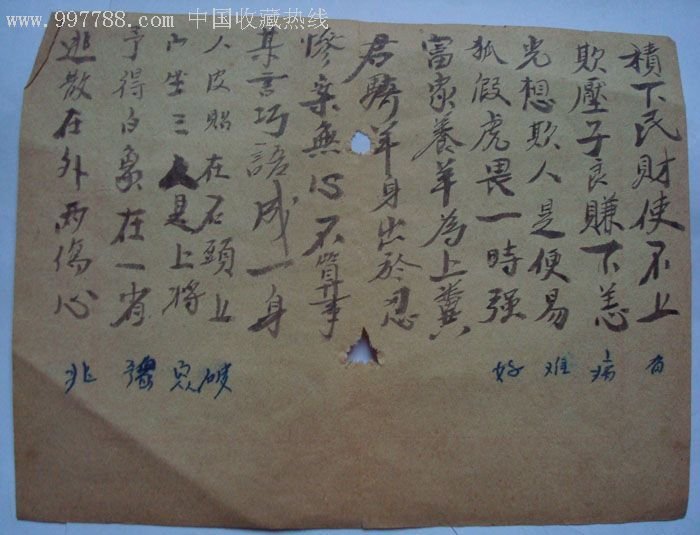 www.997788.com 中国收藏热线
積下民財使不上
欺壓子良賺下恙
光想欺人是便易
狐假虎畏一時强
富家養羊為上糞
君騎羊身出於忍
慘案無心不算事
某言巧語成一身
人皮贴在石頭上
山坐三人是上将
予得白象在一省
逃散在外两傷心
有
病
难
好
破
兆